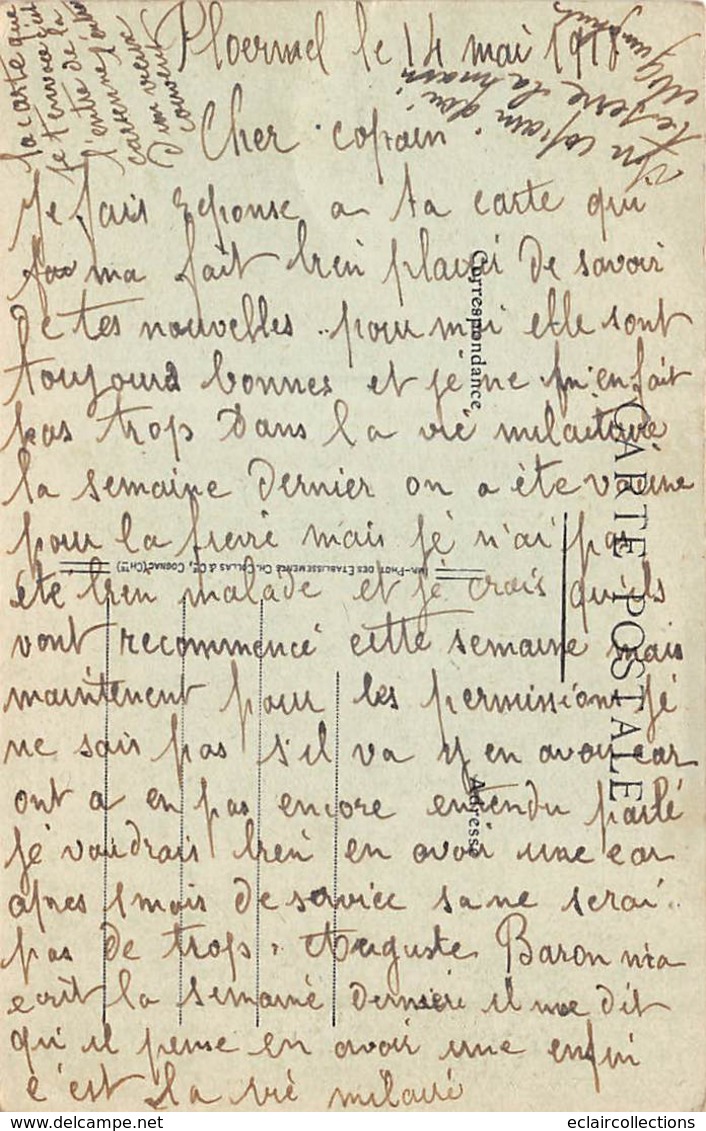 Ploermel le 14 mai 1918
Cher copain
Je fais reponse a ta carte qui
ma fait bien plaisi de savoir
de tes nouvelles .. pour moi elle sont
toujours bonnes et je ne m'en fait
pas trop dans la vie milaitaire
la semaine dernier on a été vacine
pour la fievre mais je n'ai pas
été bien malade et je crois qu'ils
vont recommencé cette semaine mais
maintenent pour les permissions je
ne sais pas s'il va y en avoir car
ont a en pas encore entendu parlé
je voudrais bien en avoir une car
apres 1 mois de service sa ne serai
pas de trop. Auguste Baron m'a
ecrit la semaine derniere il me dit
qu'il pense en avoir une enfin
c'est la vie milaire
la carte que
je t'envoie c'est
l'entré de la
caserne
d'un vieux
couvent
Ton copain qui
te serre la main
CARTE POSTALE
Correspondance
Adresse
IMP.-PHOT. DES ETABLISSEMENTS CH. COLLAS & Cie, COGNAC (Chte)
eclaircollections